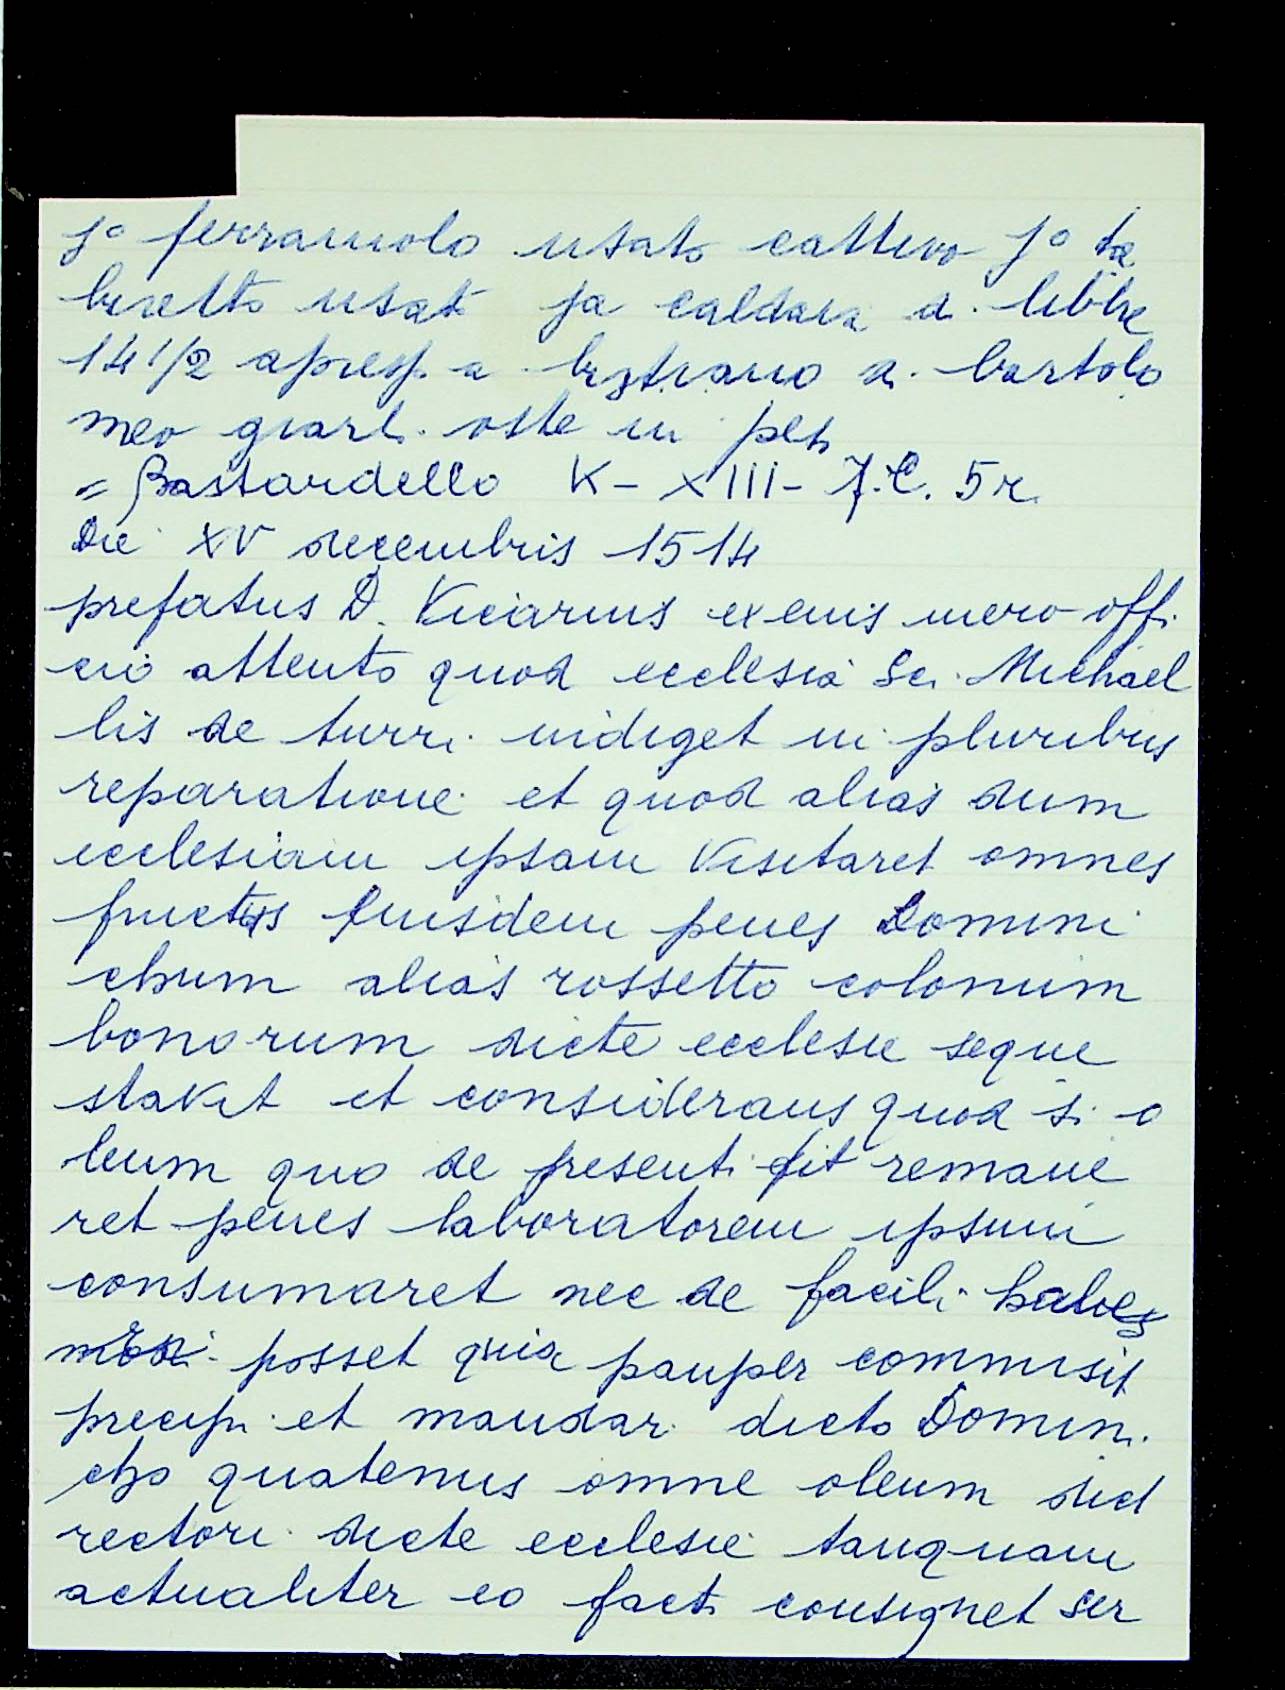 jº ferramolo usato cattivo jº ta
buretto usato ja caldara d. libbre
14 1/2 apresp. a bastiano d. bartolo
meo giarl. oste in pets
= Bastardello K - XIII - J.C. 5 r.
Die XV decembris 1514
prefatus D. Viciarius ex eius mero offi
cio attento quod ecclesia Sci. Michael
lis de turri indiget in pluribus
reparatione et quod alias dum
ecclesiam ipsam Visitaret omnes
fructus eiusdem penes Domini
chum alias rossetto colonum
bonorum dicte ecclesie seque
stravit et considerans quod si o
leum quo de presenti fit remane
ret penes laboratorem ipsum
consumaret nec de facili habe
posset quia pauper commisit
precipi et mandar. dicto Domin.
cho quatenus omne oleum dict
rectori dicte ecclesie tanquam
actualiter eo facto consignet ser